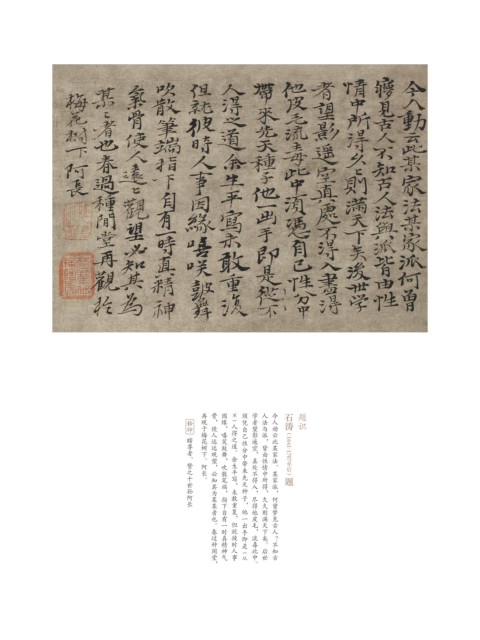 今人動云此某家法某家派何曾
夢見古人不知古人法與派皆由性
情中所得久〻則滿天下矣後世學
者望影遥空真處不得入盡得
他皮毛流毒此中須憑自己性分中
帶來先天種子他一出手即是從不
人得之道余生平寫未敢重復
但就彼時人事因緣嘻咲鼓舞
吹散筆端指下自有一時真精神
氣骨使人遠〻觀望必知其為
某〻者也春過種閒堂再觀於
梅花樹下阿長
题识
石涛(1642-1707年后)题
今人动云此某家法、某家派,何曾梦见古人?不知古
人法与派,皆由性情中所得,久久则满天下矣。后世
学者望影遥空,真处不得入,尽得他皮毛,流毒此中。
须凭自己性分中带来先天种子,他一出手即是(从
不)人得之道。余生平写,未敢重复,但就彼时人事
因缘,嘻笑鼓舞,吹散笔端,指下自有一时真精神气
骨,使人远远观望,必知其为某某者也。春过种闲堂,
再观于梅花树下,阿长。
钤印 瞎尊者、赞之十世孙阿长